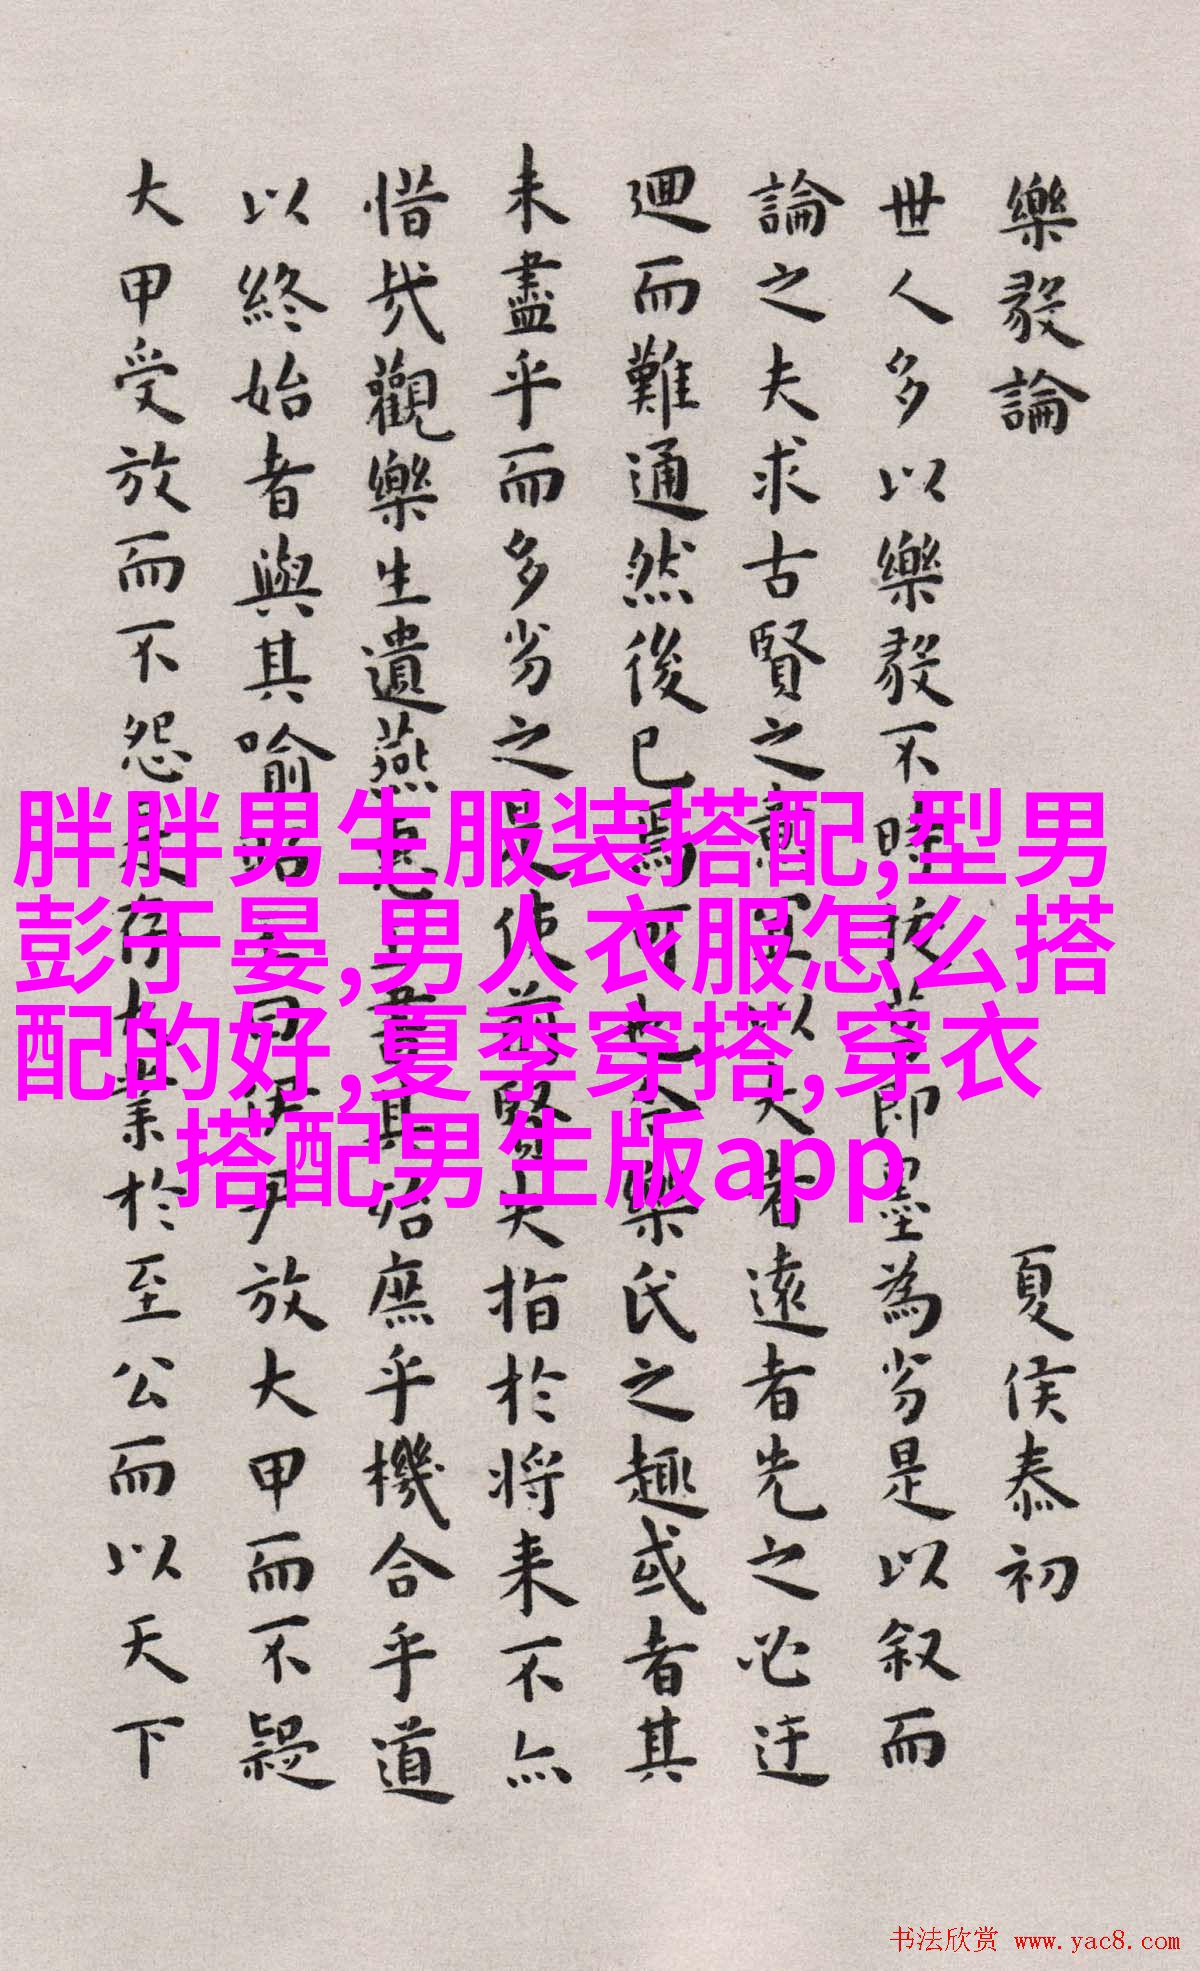 樂毅論
夏侯泰初
世人多以樂毅不時拔莒即墨為劣是以叙而
論之夫求古賢之
以大者遠者先之必迂
迴而難通然後已焉可也今樂氏之趣或者其
未盡乎而多劣之是使前賢失指於將来不亦
惜哉觀樂生遺燕惠王書其殆庶乎機合乎道
以終始者與其喻昭王曰伊尹放大甲而不疑
大甲受放而不怨是存大業於至公而以天下
胖胖男生服装搭配,型男
彭于晏,男人衣服怎么搭
配的好,夏季穿搭,穿衣
搭配男生版app
书法欣赏 www.yac8.com